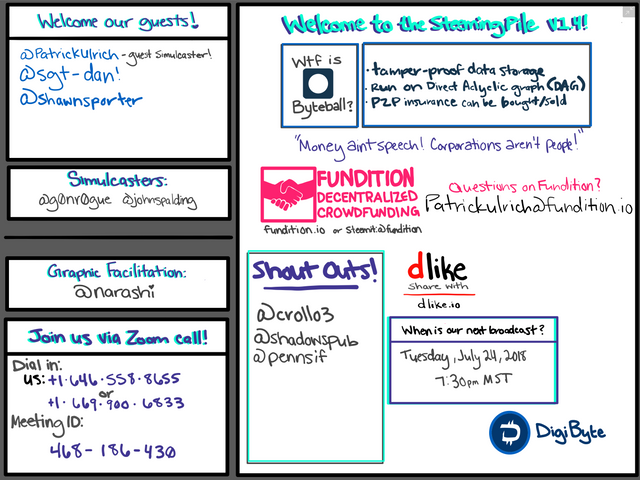 Welcome our guests!
@Patrickulrich - guest Simulcaster!
@sgt-dan!
@shawnsporter
Simulcasters:
@g0nr0gue @johnspalding
Graphic Facilitation:
@narashi
Join us via Zoom call!
Dial in:
us: +1.646.558.8655
or
+1.669.900.6833
Meeting ID:
468-186-430
Welcome to the SteemingPile v1.4!
WTF is
Byteball?
• tamper-proof data storage
• Run on Direct Adyclic graph (DAG)
• P2P insurance can be bought/sold
"Money aint speech! Corporations aren't people!"
FUNDITION
DECENTRALIZED
CROWDFUNDING
fundition.io or Steemit:@fundition
Questions on Fundition?
Patrickulrich@fundition.io
Shout Outs!
@crollo3
@shadowspub
@pennsif
dlike
share with
dlike.io
When is our next broadcast?
Tuesday, July 24, 2018
7:30pm MST
DigiByte